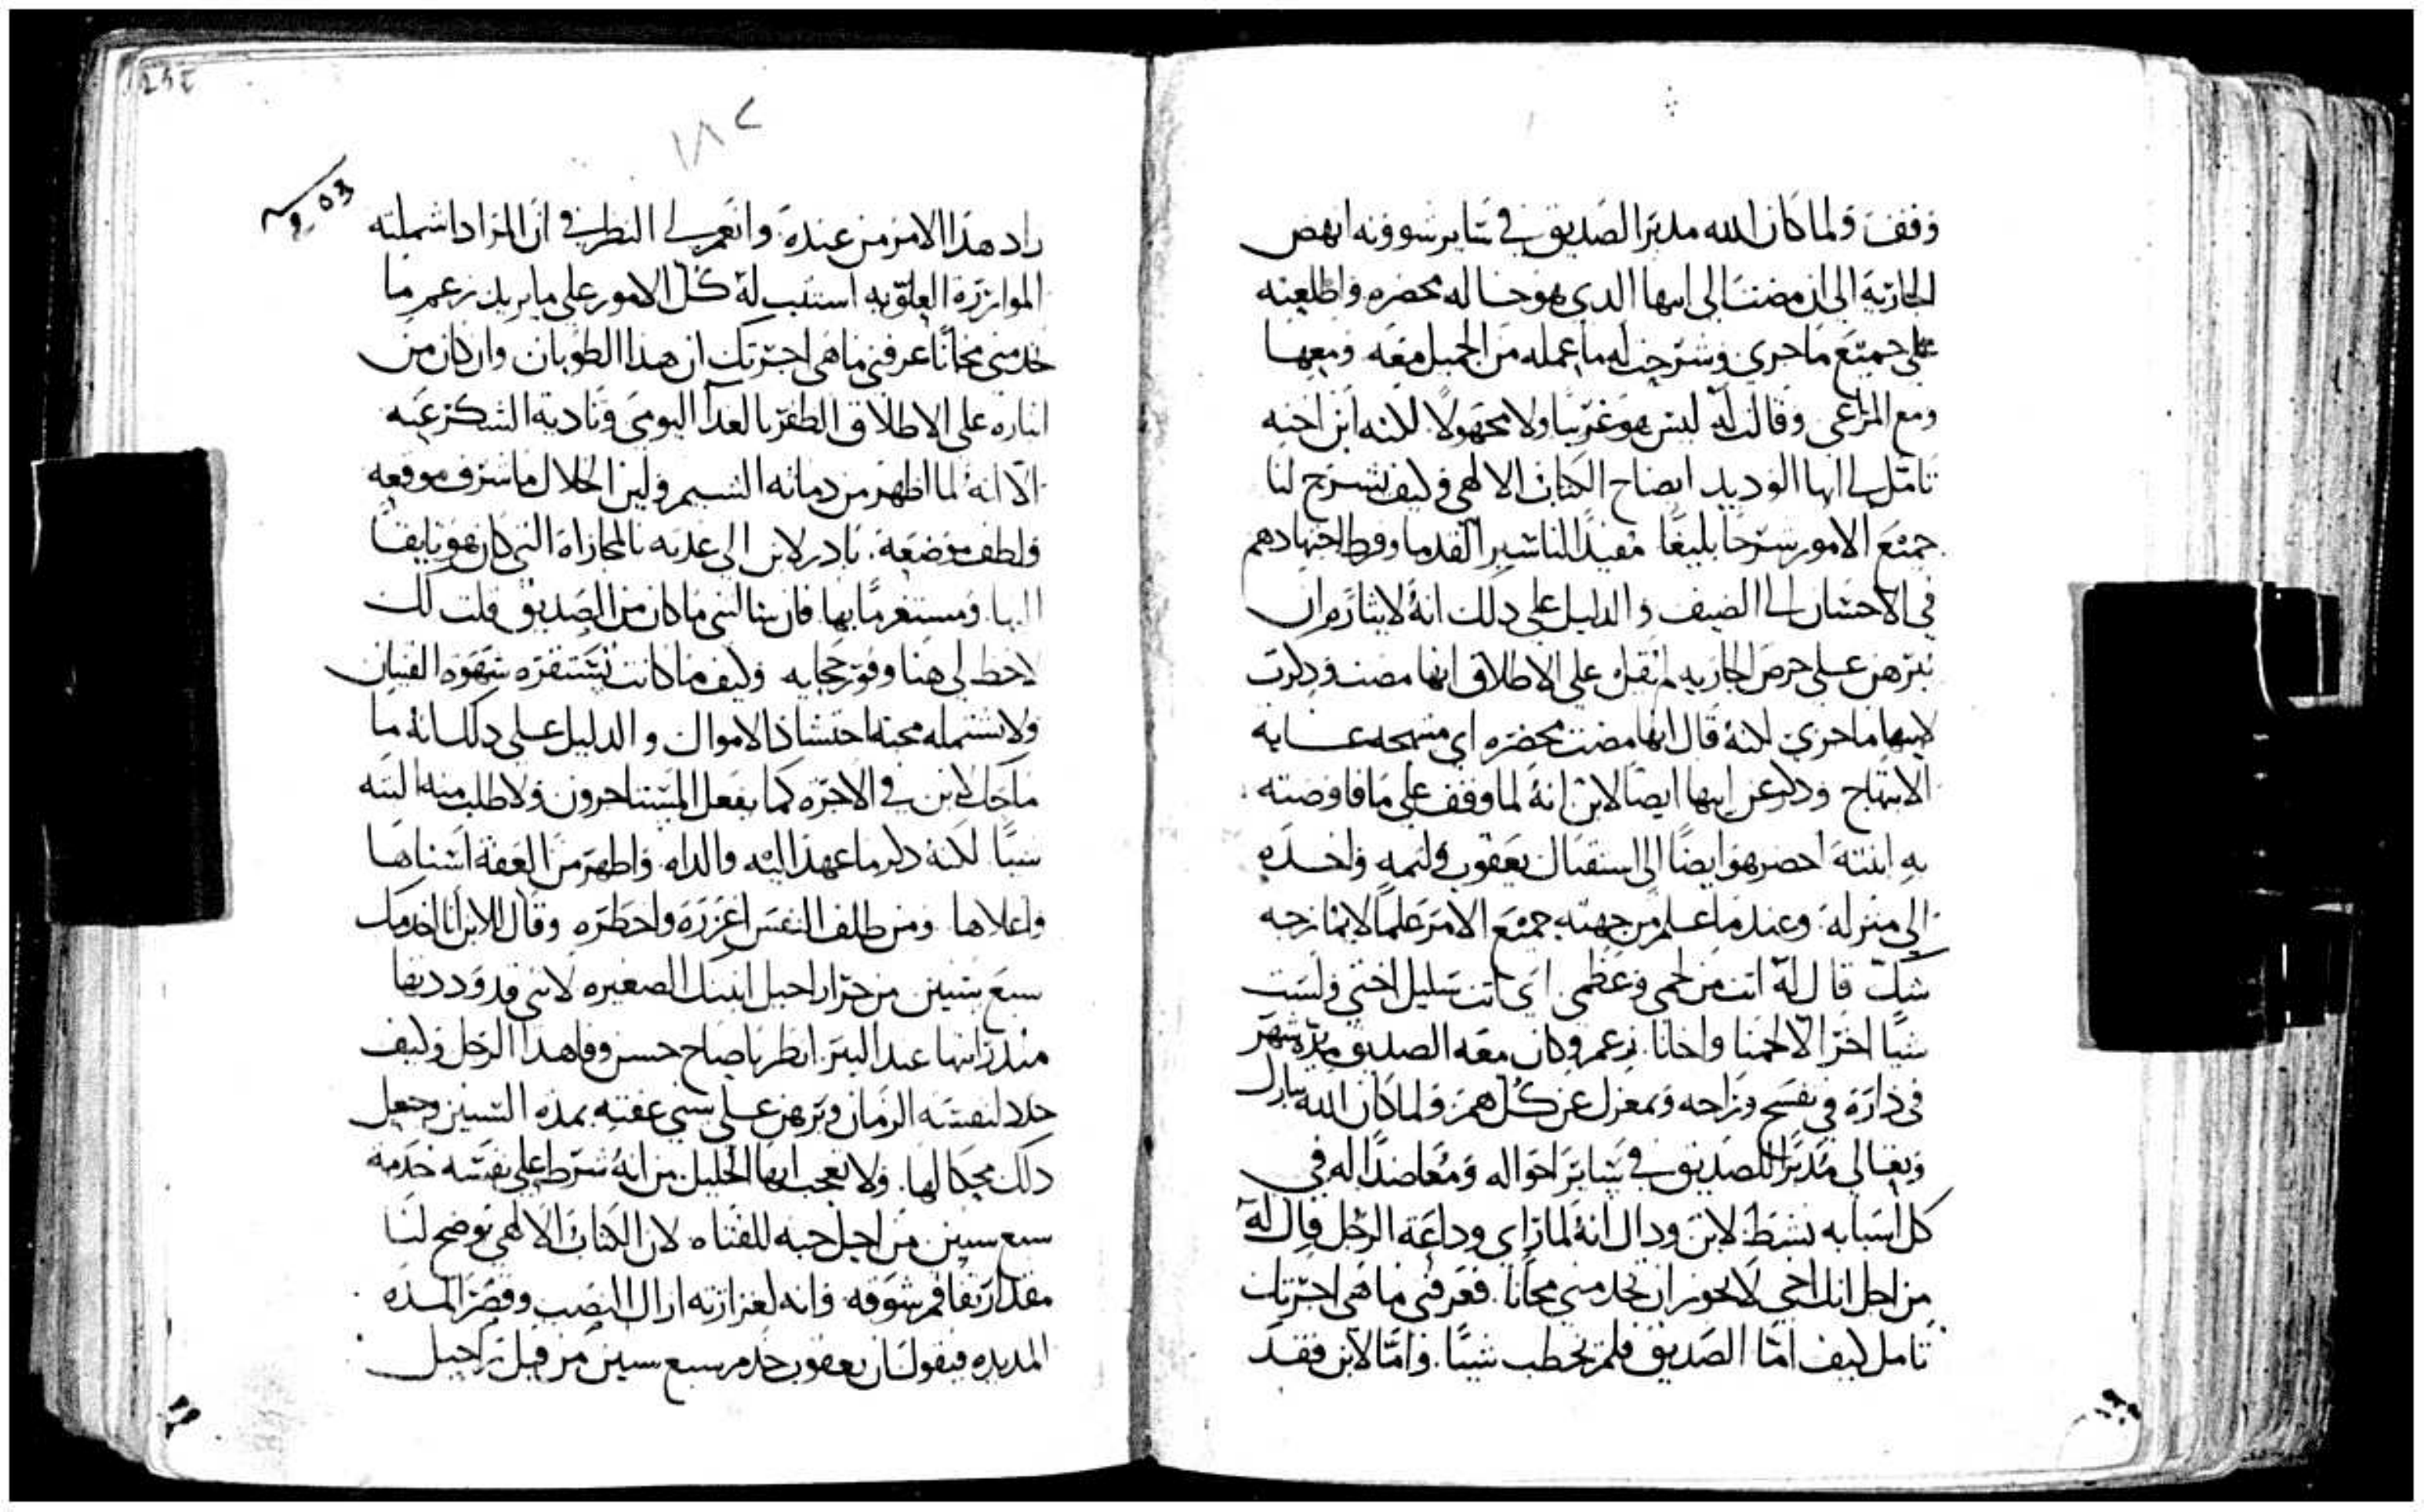 وقف ولما كان الله مدبرا لصديق في ساير شوونه انهض
الجارية الى ان مضت الى ابيها الدي هو خاله محضره واطلعته
على جميع ما جرى وشرحت له ما عمله من الجميل معه ومعها
ومع المراعي وقالت له ليس هو غريبا ولا مجهولا لكنه ابن اخته
تامل لي ايها الوديد ايضاح الكتاب الالهي وكيف يشرح لنا
جميع الامور شرحا بليغا مفيدا لنا شير القدما وفرط اجتهادهم
في الاحسان الى الضيف والدليل على دلك انه لايثاره ان
يبرهن على حرص الجاريه لم يقل على الاطلاق انها مضت ودكرت
لابيها ما جرى لكنه قال انها مضت محضره اي مبتهجه غايه
الابتهاج ودكر عن ابيها ايضا لابن انه لما وقف على ما فاوضته
به ابنته احضر هو ايضا الى استقبال يعقوب ولثمه واخده
الى منزله وعندما علم من جهته جميع الامر علما لا يمازجه
شك قال له انت من لحمي وعظمي اي انت سليل اختي ولست
شيا اخر الا لحمنا واخانا زعم وكان معه الصديق مدة شهر
في داره في تفسح وراحه وبمعزل عن كل هم ولما كان الله تبارك
وتعالى مدبرا للصديق في ساير احواله ومعاضدا له في
كل اسبابه نشط لابن ودال انه لما راى وداعة الرجل قال له
من اجل انك اخي لا يجوز ان تخدمني مجانا فعرفني ما هي اجرتك
تامل كيف اما الصديق فلم يخطب شيا واما لابن فقد
١٨٢
راد هدا الامر من عنده وانعم لي النظر في ان المراد اشملته
الموازرة العلويه استتب له كل الامور على ما يريد زعم ما
تخدمني مجانا عرفني ما هي اجرتك ان هدا الطوبان وان كان من
ايثاره على الاطلاق الظفر بالغدا اليومي وتادية الشكر عنه
الا انه لما اظهر من دماثه النسيم ولين الخلال ما شرف موقعه
ولطف موضعه بادر لابن الى عدته بالمجازاة التي كان هو تايقا
اليها ومستغرما بها فان سالتني ما كان من الصديق قلت لك
لاحظ لي هنا وفور حجايه وكيف ما كانت تستفزه شهوه القنيان
ولا تشتمله محبة احتشاد الاموال والدليل على دلك انه ما
ماحك لابن في الاجره كما يفعل المستاجرون ولا طلب منه البته
شيا لكنه دكر ما عهد اليه والداه واظهر من العفه اسناها
واعلاها ومن ظلف النفس اغزره واخطره وقال للابن انا اخدمك
سبع سنين من جرا راحيل ابنتك الصغيره لانني قد وددتها
مند رايتها عند البير انظر يا صاح حسن وفا هدا الرجل وكيف
حدد لنفسه الزمان وبرهن على سني عفته بمدة السنين وجعل
دلك محكا لها ولا تعجب ايها الخليل من انه شرط على نفسه خدمة
سبع سنين من اجل حبه للفتاه لان الكتاب الالهي يوضح لنا
مقدار تفاقم شوقه وانه لغزارته ازال النصب وقصر المده
المديده فيقول ان يعقوب خدم سبع سنين من قبل راحيل